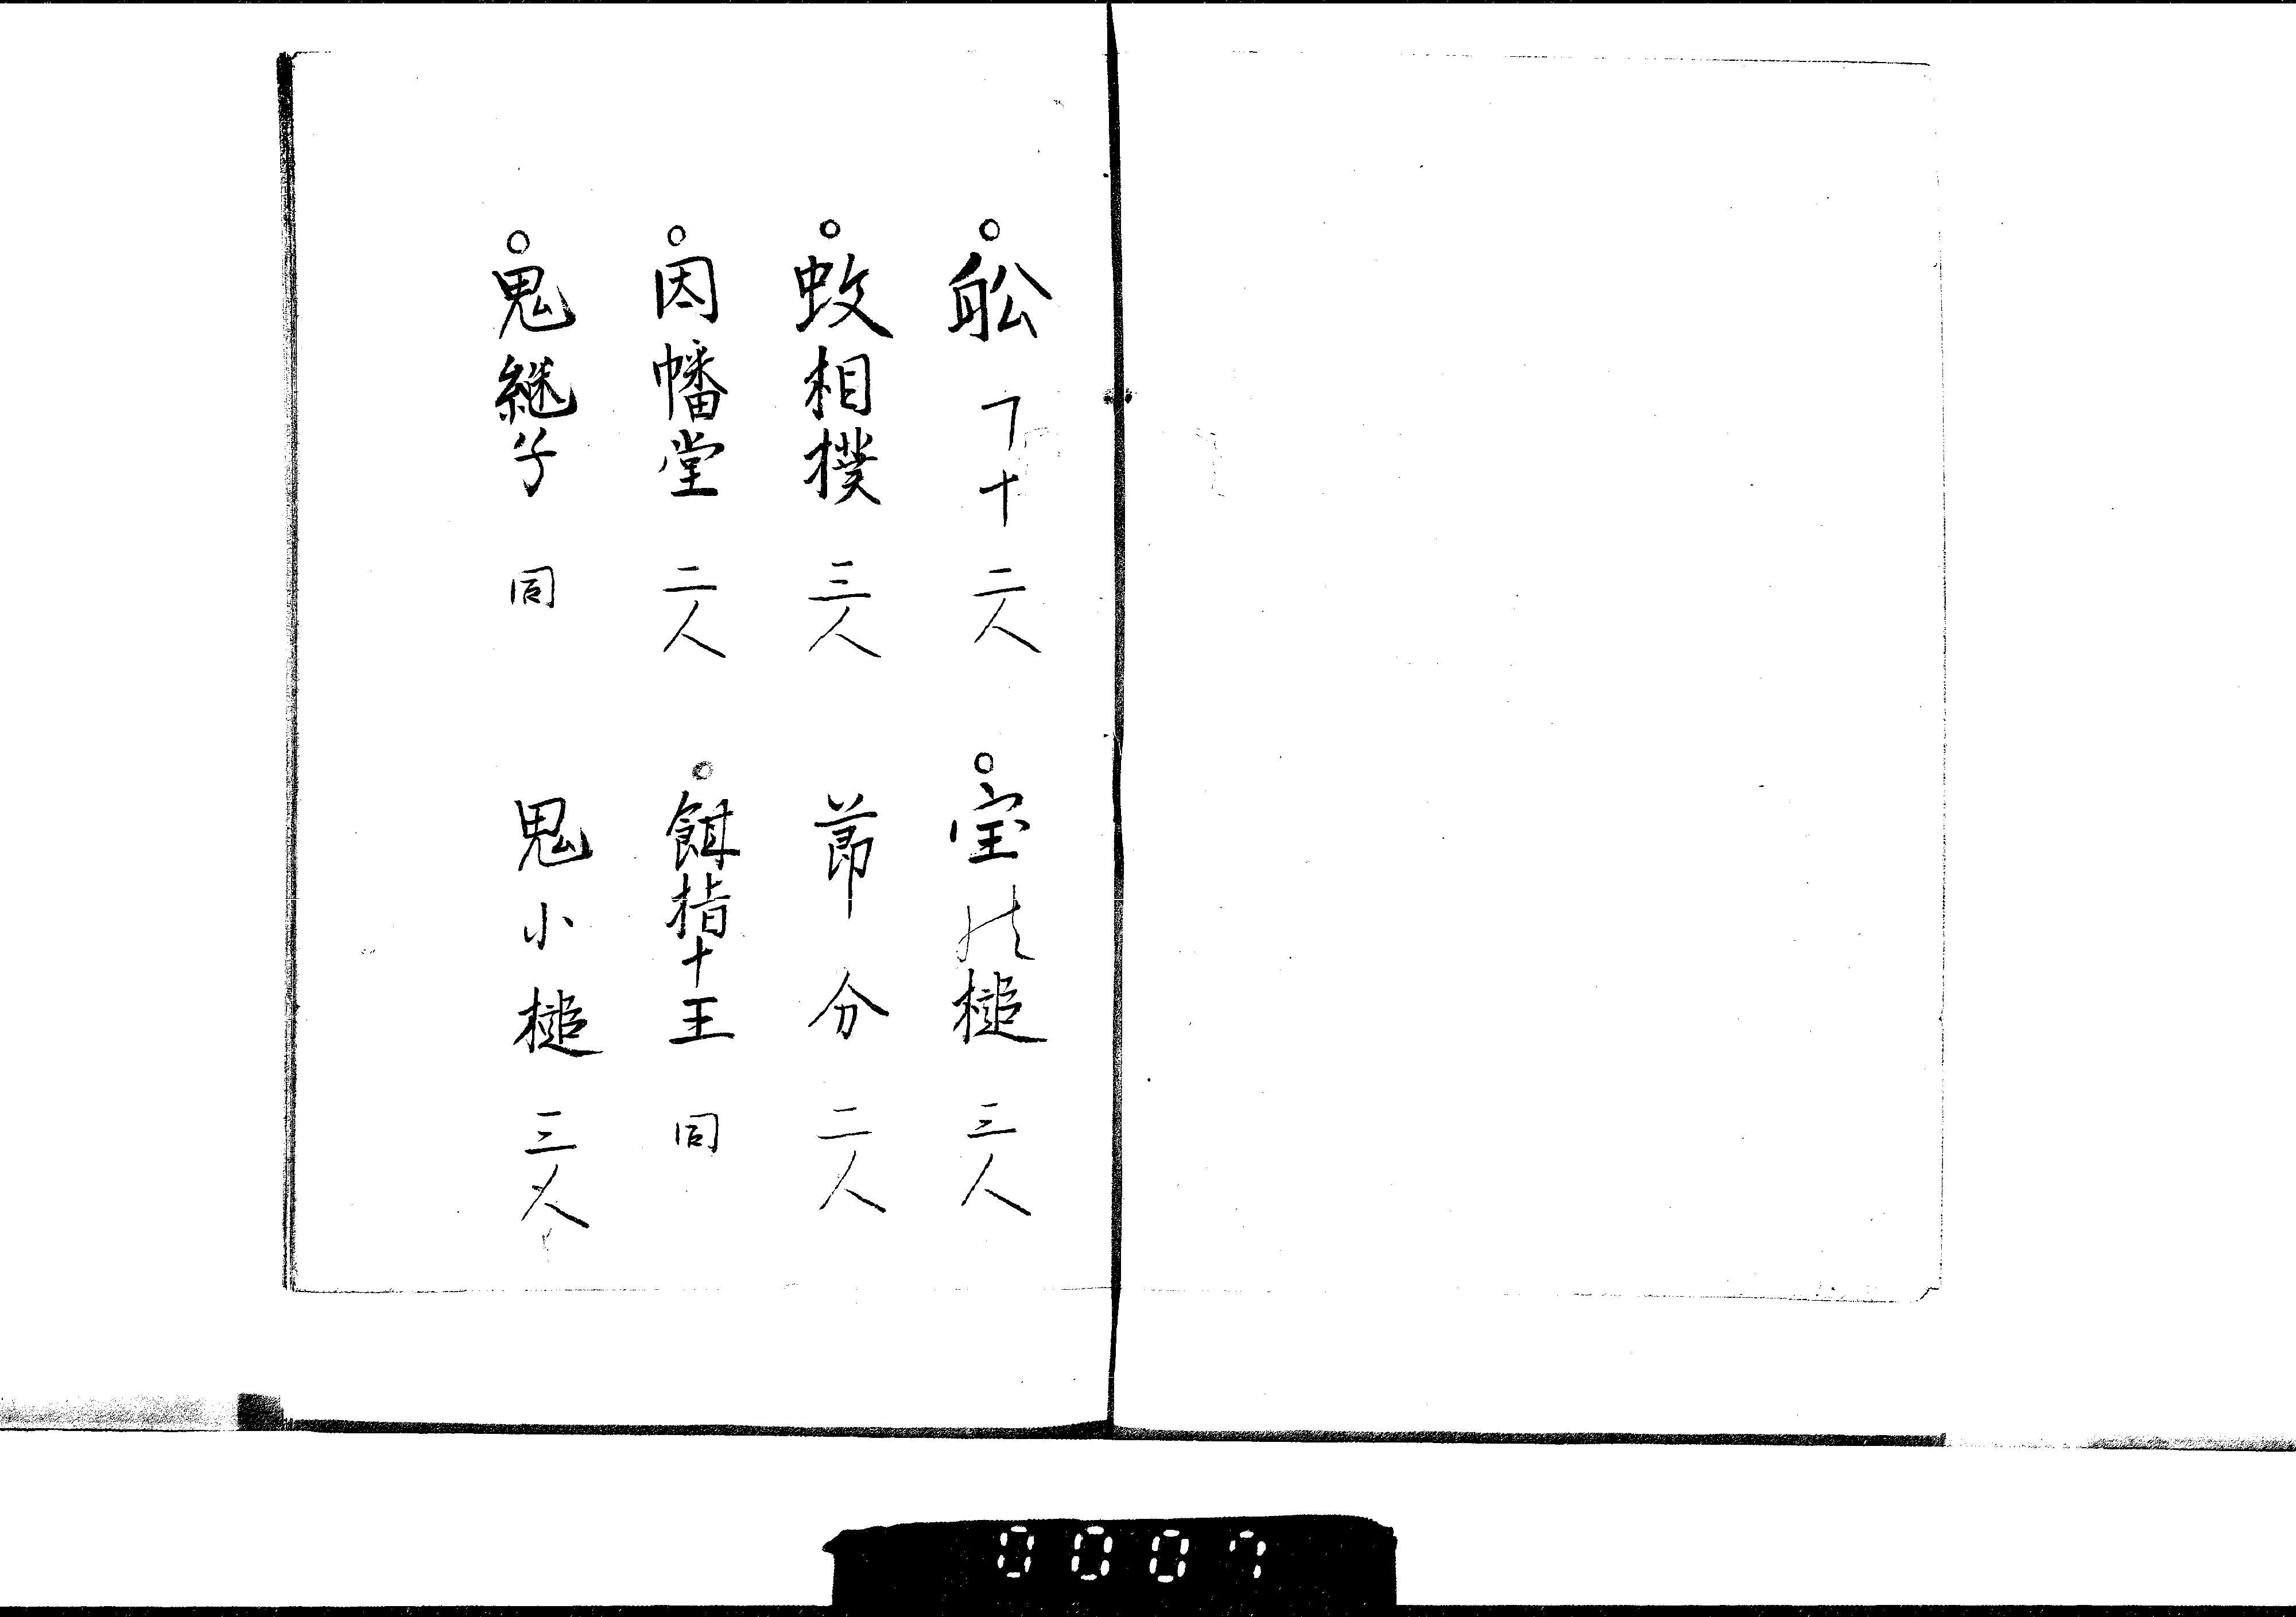 ○舩フナ 二人
○宝の槌 三人
○蚊相撲 三人
節分 二人
○因幡堂 二人
○餌指十王 同
○鬼継子 同
鬼小槌 三人
0007